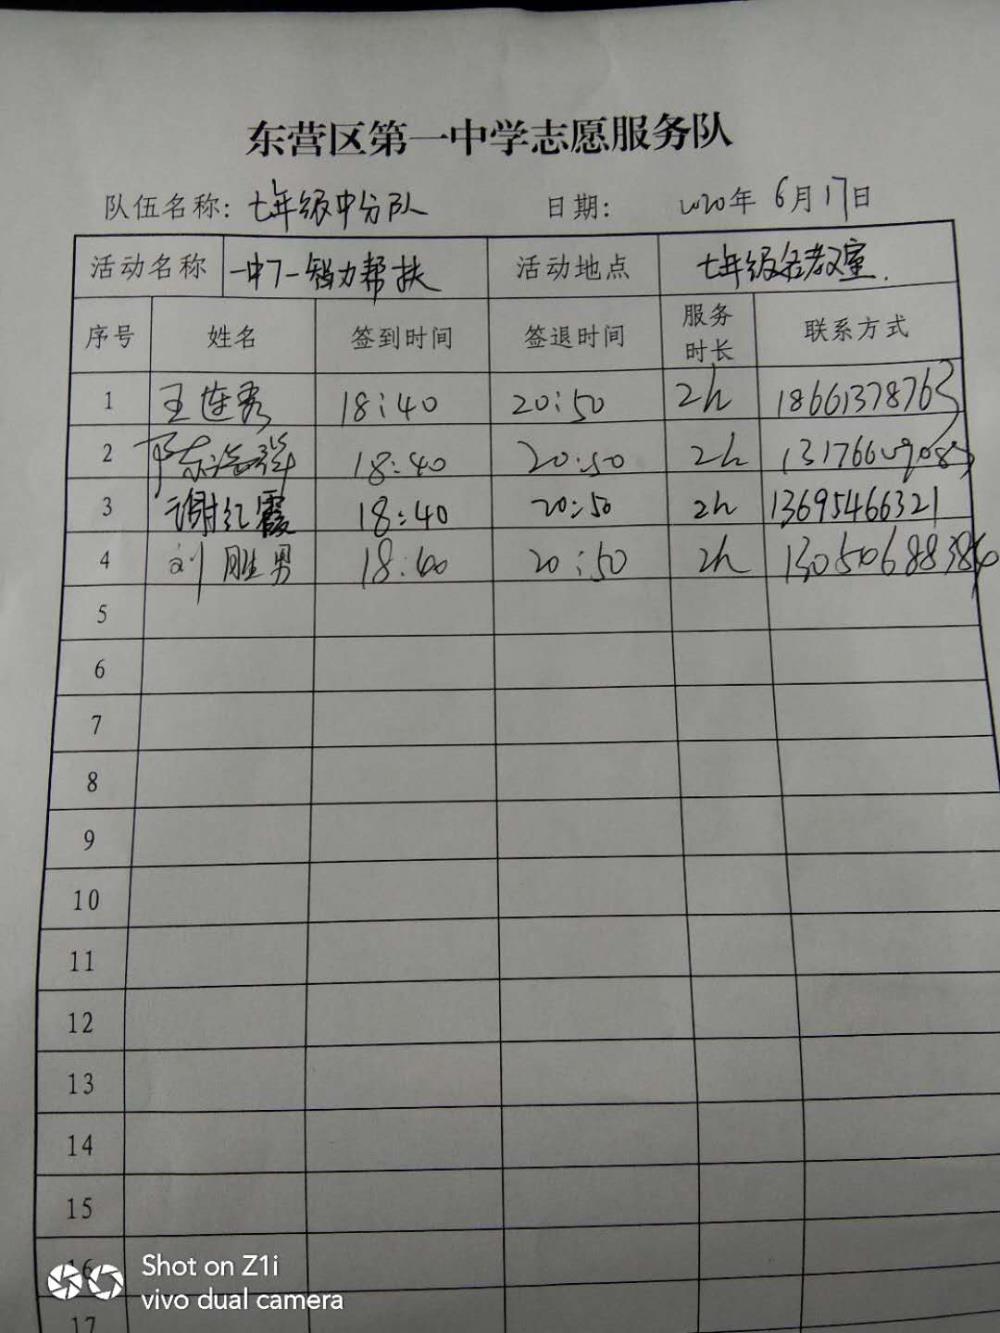 东营区第一中学志愿服务队
队伍名称: 七年级中分队 日期: 2020年 6月17日
活动名称 一中7一智力帮扶 活动地点 七年级各教室.
序号 姓名 签到时间 签退时间 服务时长 联系方式
1 王连秀 18:40 20:50 2h 18661378763
2 陈 18:40 20:50 2h
3 谢红霞 18:40 20:50 2h 13695466321
4 刘胜男 18:40 20:50 2h
5
6
7
8
9
10
11
12
13
14
15
16
17
Shot on Z1i
vivo dual camera